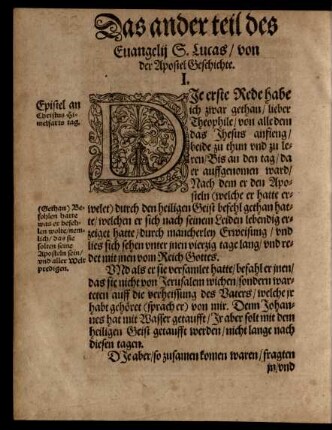 Das ander teil des
Euangelij S. Lucas/ von
der Apostel Geschichte.
I.
Epistel an
Christus hi-
melfarts tag.
DIe erste Rede habe
ich zwar gethan/ lieber
Theophile/ von alle dem
das Jhesus anfieng/
beide zu thun vnd zu le-
ren/ Bis an den tag/ da
er auffgenomen ward/
Nach dem er den Apo-
steln (welche er hatte er-
(Gethan) Be-
fohlen hatte
was er befeh-
len wolte/ nem-
lich/ das sie
solten seine
Aposteln sein/
vnd aller Welt
predigen.
welet) durch den heiligen Geist befehl gethan hat-
te/ welchen er sich nach seinem Leiden lebendig er-
zeiget hatte/ durch mancherley Erweisung/ vnd
lies sich sehen vnter jnen vierzig tage lang/ vnd re-
det mit jnen vom Reich Gottes.
VNd als er sie versamlet hatte/ befahl er jnen/
das sie nicht von Jerusalem wichen/ sondern war-
teten auff die verheissung des Vaters/ welche jr
habt gehöret (sprach er) von mir. Denn Johan-
nes hat mit Wasser getaufft/ Jr aber solt mit dem
heiligen Geist getaufft werden/ nicht lange nach
diesen tagen.
DJe aber/ so zusamen komen waren/ fragten
jn/ vnd